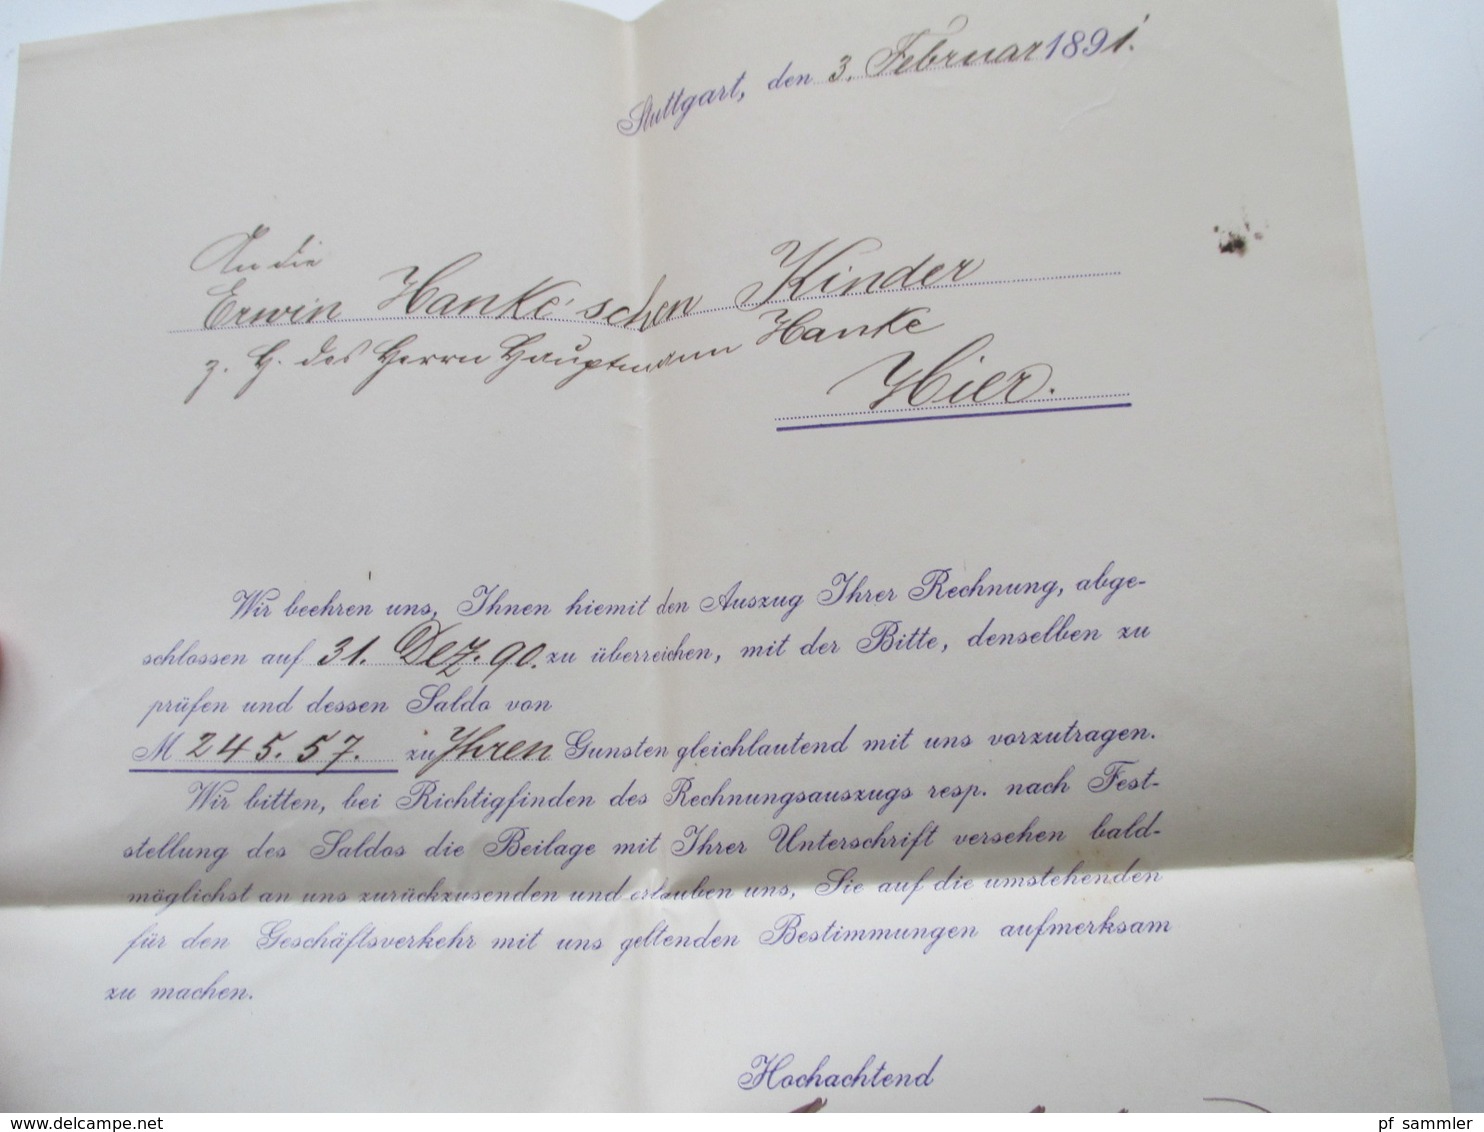 Stuttgart, den 3. Februar 1891.
An die
Erwin Hanke'schen Kinder
z. H. des Herrn Hauptmann Hanke
Hier.
Wir beehren uns, Ihnen hiemit den Auszug Ihrer Rechnung, abge-
schlossen auf 31. Dez. 90. zu überreichen, mit der Bitte, denselben zu
prüfen und dessen Saldo von
M 245.57. zu Ihren Gunsten gleichlautend mit uns vorzutragen.
Wir bitten, bei Richtigfinden des Rechnungsauszugs resp. nach Fest-
stellung des Saldos die Beilage mit Ihrer Unterschrift versehen bald-
möglichst an uns zurückzusenden und erlauben uns, Sie auf die umstehenden
für den Geschäftsverkehr mit uns geltenden Bestimmungen aufmerksam
zu machen.
Hochachtend
www.delcampe.net
pf_sammler